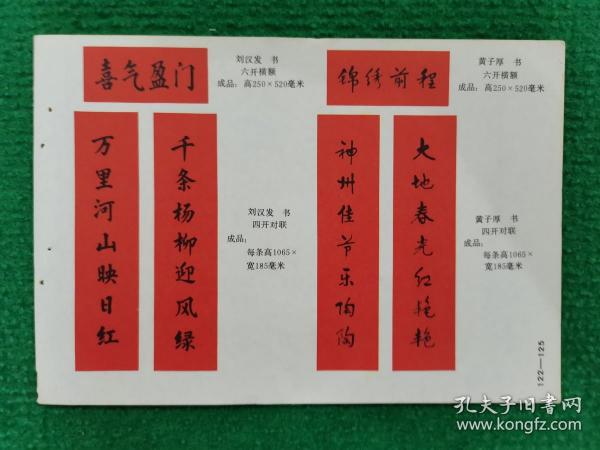 喜气盈门
刘汉发 书
六开横额
成品：高250×520毫米
锦绣前程
黄子厚 书
六开横额
成品：高250×520毫米
千条杨柳迎风绿
万里河山映日红
刘汉发 书
四开对联
成品：
每条高1065×
宽185毫米
大地春光红艳艳
神州佳节乐陶陶
黄子厚 书
四开对联
成品：
每条高1065×
宽185毫米
122—125
孔夫子旧书网
www.kongfz.com